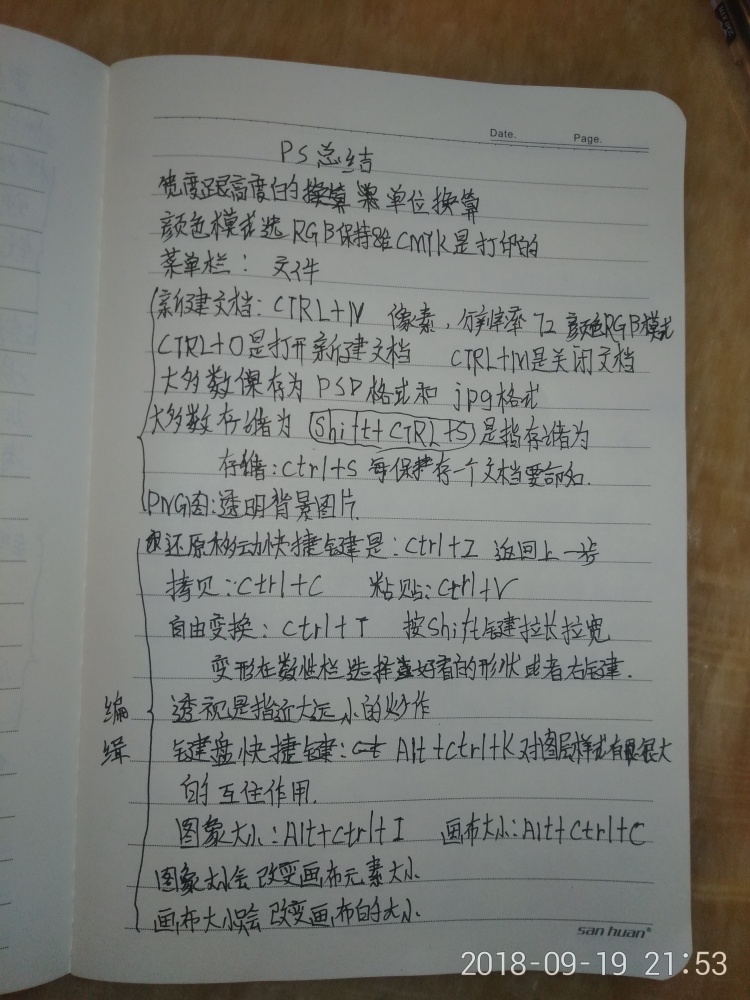 Date.
Page.
PS总结
宽度跟高度的换算 单位换算
颜色模式选RGB保持 CMYK是打印的
菜单栏：文件
新建文档：CTRL+N 像素，分辨率72 颜色RGB模式
CTRL+O是打开新建文档 CTRL+M是关闭文档
大多数保存为PSD格式和jpg格式
大多数存储为 Shift+CTRL+S 是指存储为
存储：ctrl+s 每保存一个文档要命名.
PNG图：透明背景图片.
还原移动快捷键是：ctrl+Z 返回上一步
拷贝：ctrl+C 粘贴：ctrl+V
自由变换：ctrl+T 按Shift键拉长拉宽
变形在数性栏选择 好看的形状或者右键.
编辑
透视是指近大远小的操作
键盘快捷键：Alt+ctrl+K 对图层样式有很大
的互住作用.
图象大小：Alt+ctrl+I 画布大小：Alt+Ctrl+C
图象大小会改变画布元素大小.
画布大小只会改变画布的大小.
san huan
2018-09-19 21:53